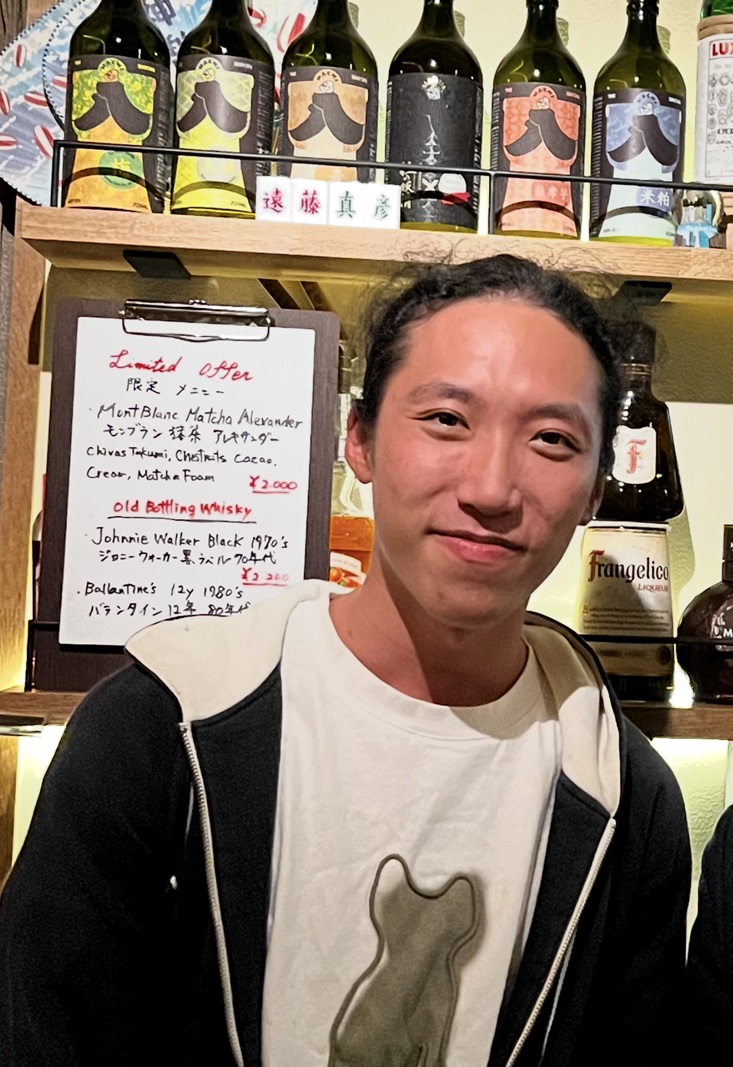 遠藤真彦
LUX
米粕
Limited Offer
限定 メニュー
・MontBlanc Matcha Alexander
モンブラン 抹茶 アレキサンダー
Chivas Takumi, Chestnuts Cacao,
Cream, Matcha Foam
¥2.000
Old Bottling Whisky
・Johnnie Walker Black 1970's
ジョニーウォーカー黒ラベル 70年代
¥2.200
・Ballantine's 12y 1980's
バランタイン 12年 80年代
F
Frangelico
LIQUEUR
M